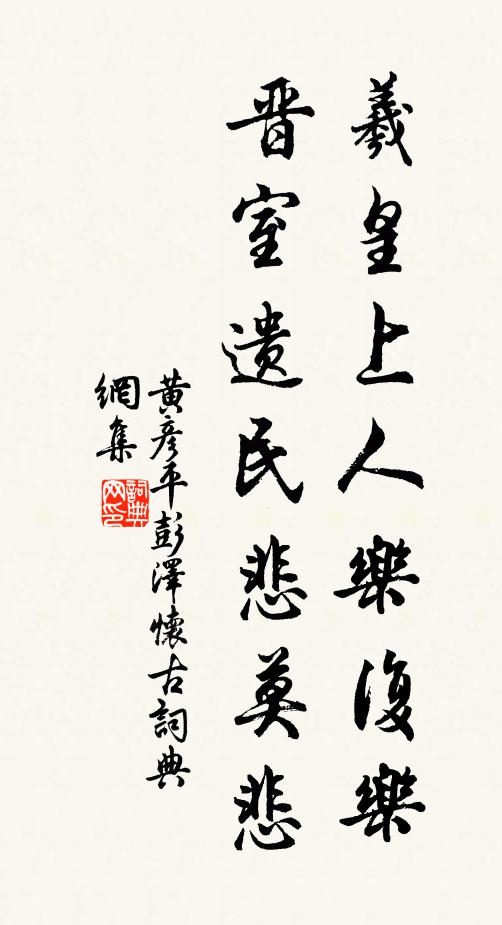 羲皇上人樂復樂
晋室遺民悲莫悲
黃彦平彭澤懷古詞典
網集
詞典
网印